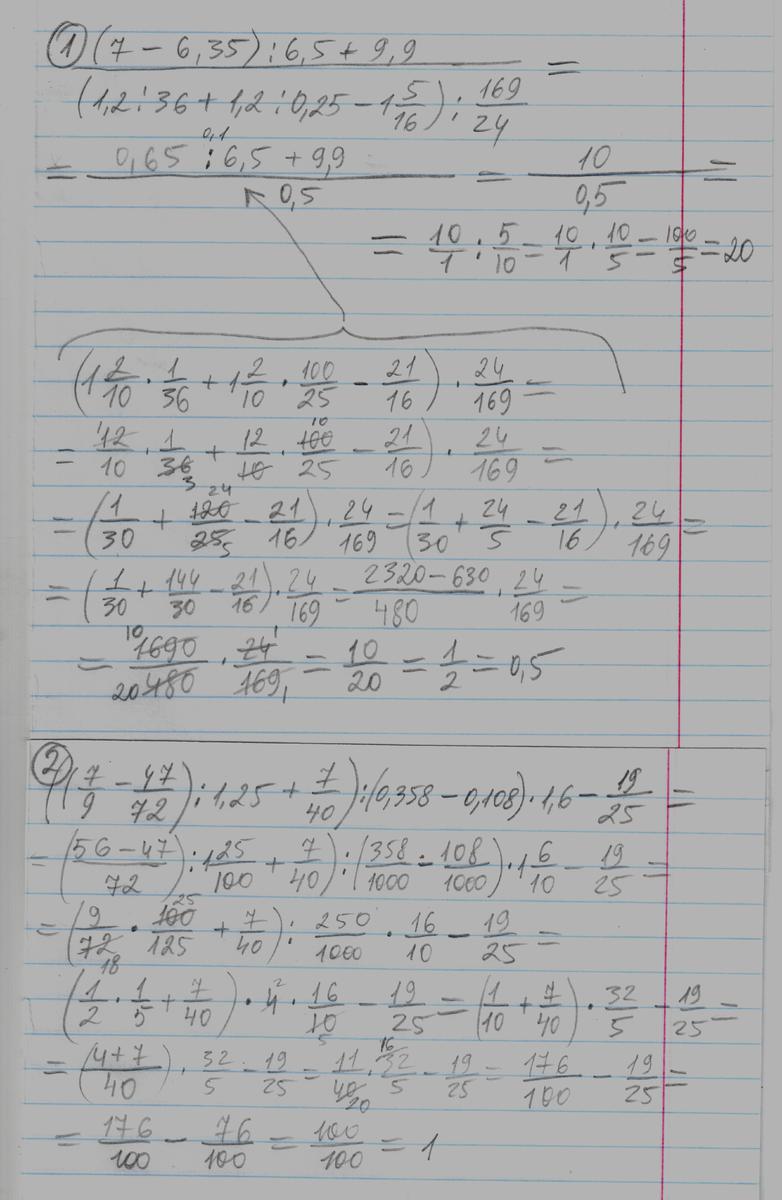 1) (7 − 6,35) : 6,5 + 9,9 / (1,2 : 36 + 1,2 : 0,25 − 1 5/16) : 169/24 =
= 0,65 : 6,5 + 9,9 / 0,5 = 10 / 0,5 =
0,1
= 10/1 : 5/10 = 10/1 · 10/5 = 100/5 = 20
(1 2/10 · 1/36 + 1 2/10 · 100/25 − 21/16) · 24/169 =
= 12/10 · 1/36 + 12/10 · 100/25 − 21/16) · 24/169 =
3 10
= (1/30 + 120/25 − 21/16) · 24/169 = (1/30 + 24/5 − 21/16) · 24/169 =
24 5
= (1/30 + 144/30 − 21/16) · 24/169 = 2320 − 630 / 480 · 24/169 =
= 1690/480 · 24/169 = 10/20 = 1/2 = 0,5
10 20 1 1
2) ((7/9 − 47/72) : 1,25 + 7/40) : (0,358 − 0,108) · 1,6 − 19/25 =
= (56 − 47 / 72) : 1 25/100 + 7/40) : (358/1000 − 108/1000) · 1 6/10 − 19/25 =
= (9/72 · 100/125 + 7/40) : 250/1000 · 16/10 − 19/25 =
18 25
(1/2 · 1/5 + 7/40) · 4 · 16/10 − 19/25 = (1/10 + 7/40) · 32/5 − 19/25 =
2 5
= (4+7 / 40) · 32/5 − 19/25 = 11/40 · 32/5 − 19/25 = 176/100 − 19/25 =
20 16
= 176/100 − 76/100 = 100/100 = 1